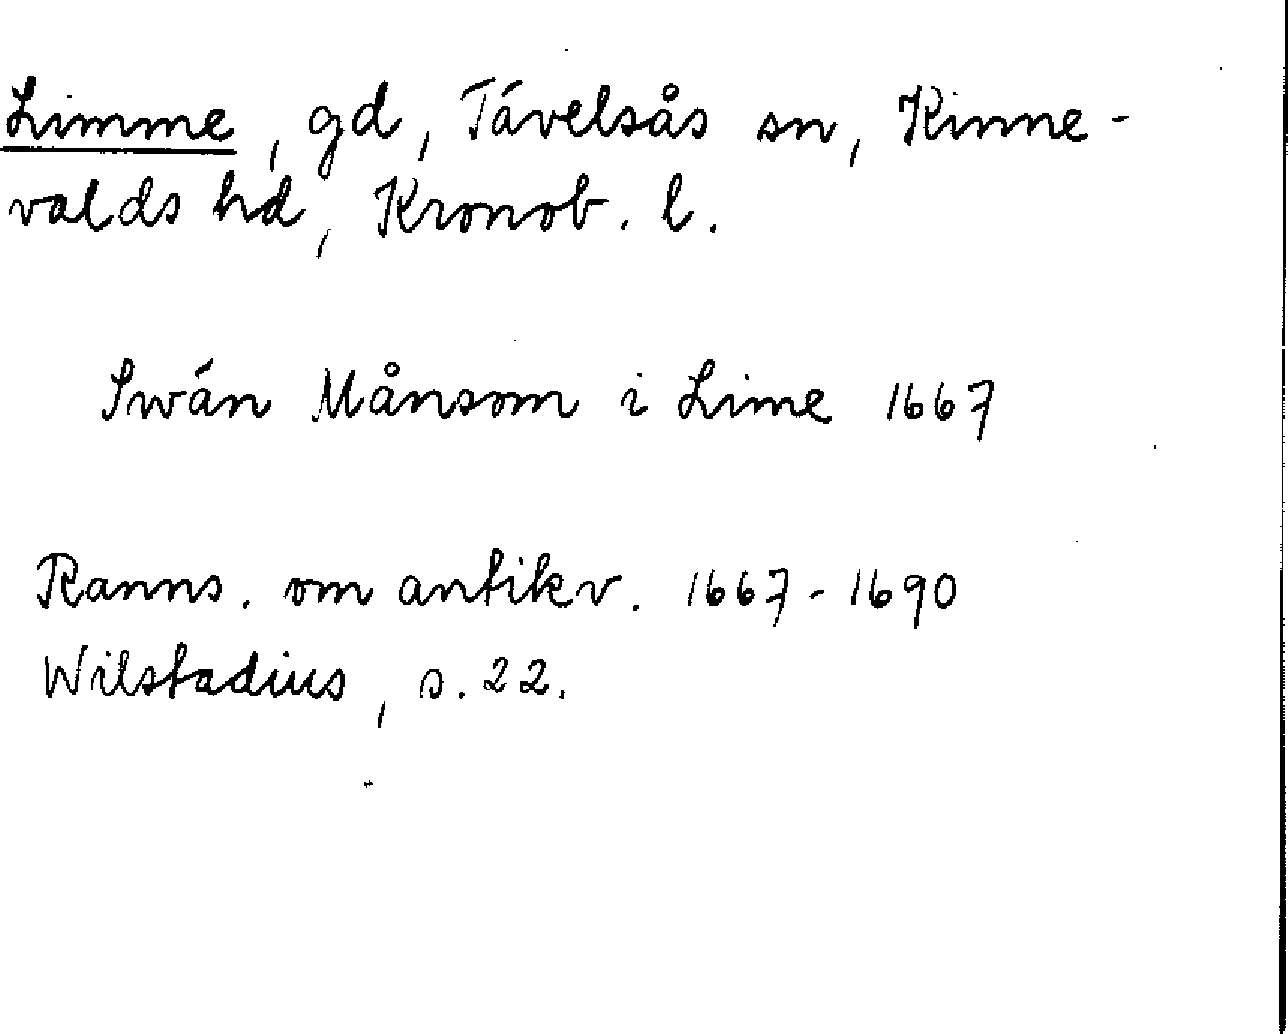 Limme, gd, Tävelsås sn, Kinne-
valds hd, Kronob. l.
Swän Månsom i Lime 1667
Ranns. om antikv. 1667-1690
Wilstadius, s. 22.